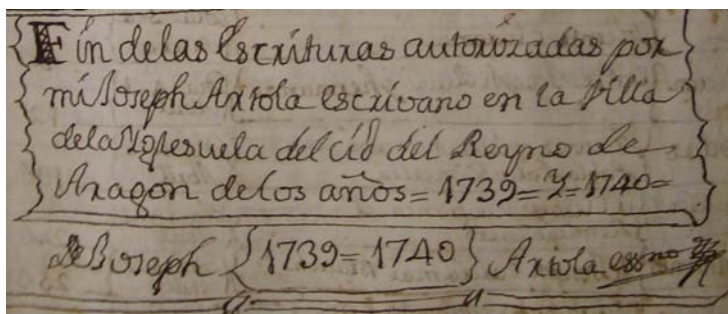 Fin delas Escrituras autorizadas por
mi Joseph Artola escrivano en la Villa
dela Yglesuela del Cid del Reyno de
Aragon de los años = 1739 = Y = 1740 =
de Joseph {1739 = 1740} Artola essno